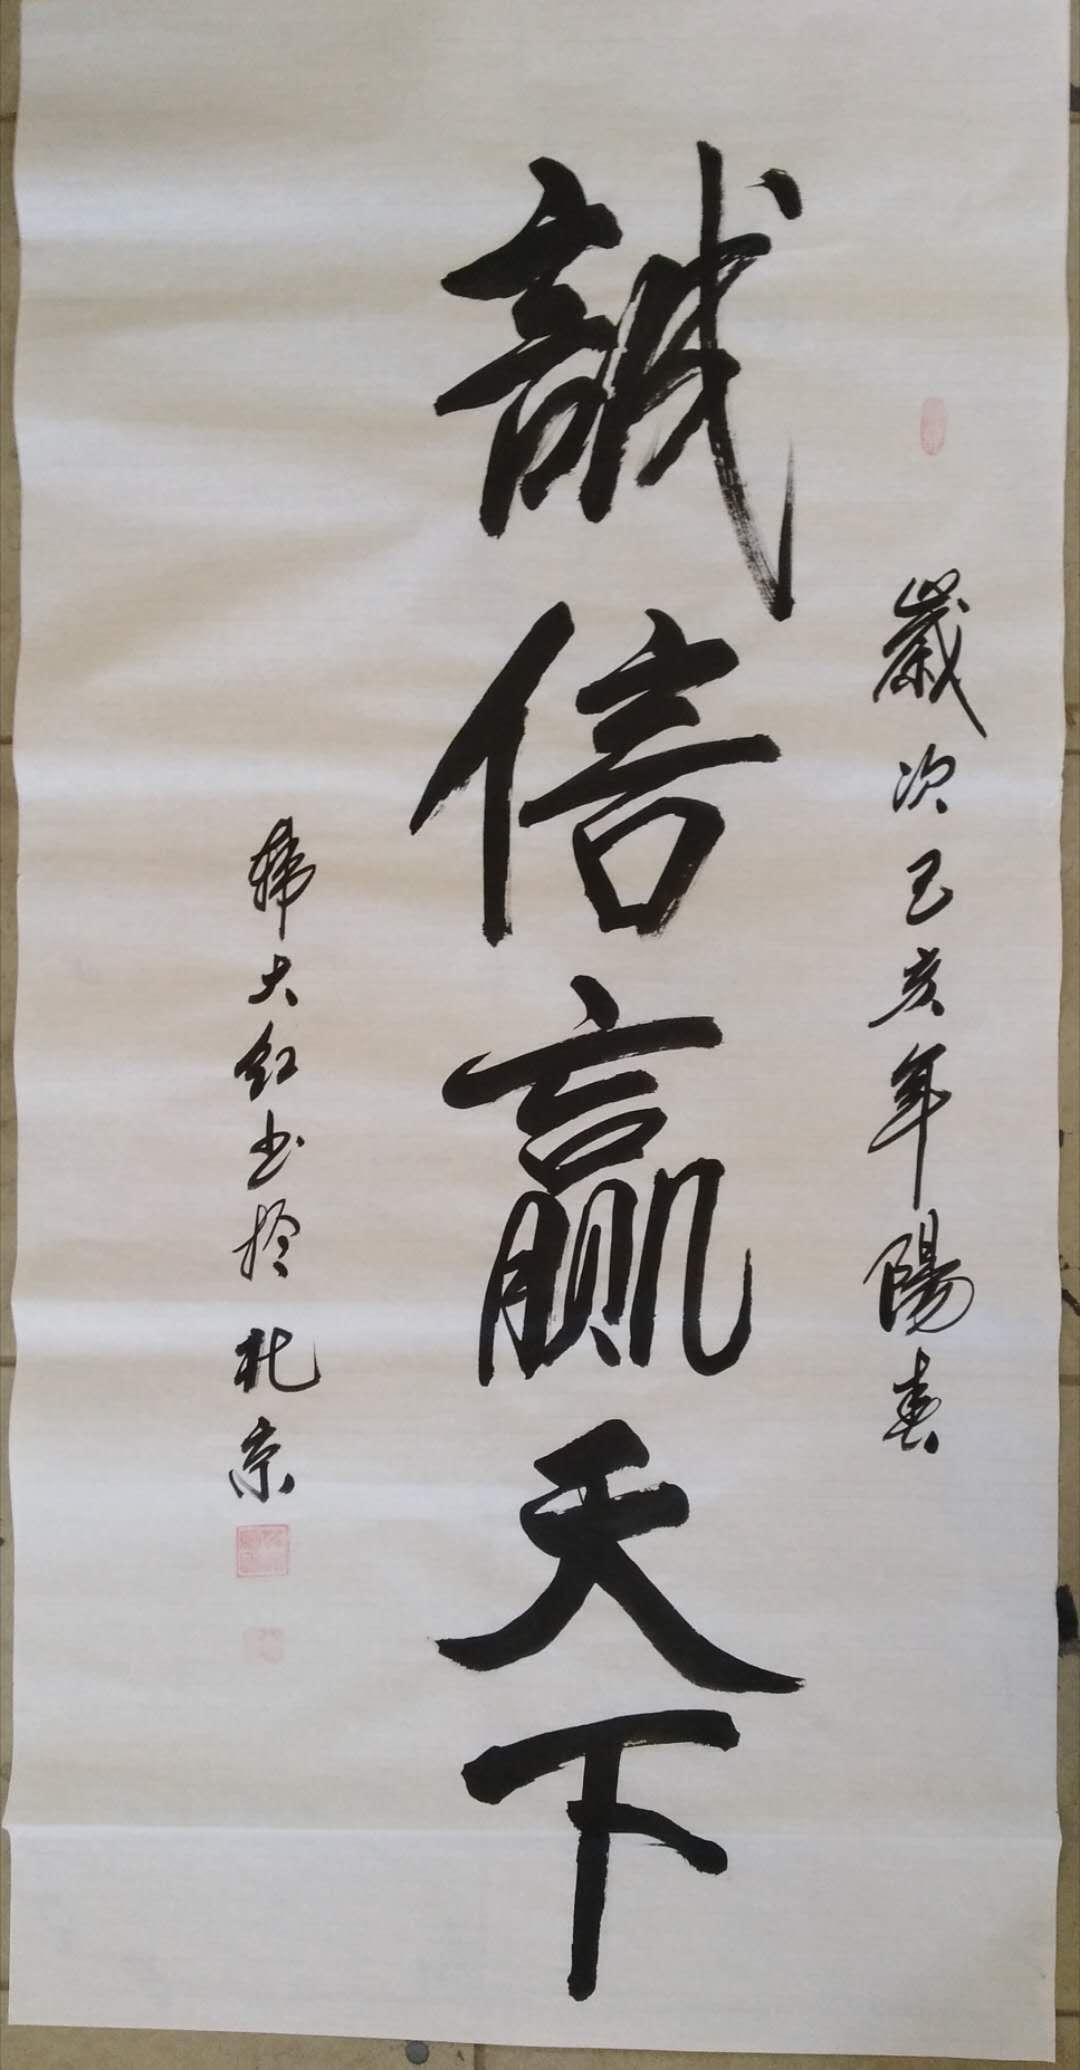 歲次己亥年陽春
誠信赢天下
韩大红书於北京